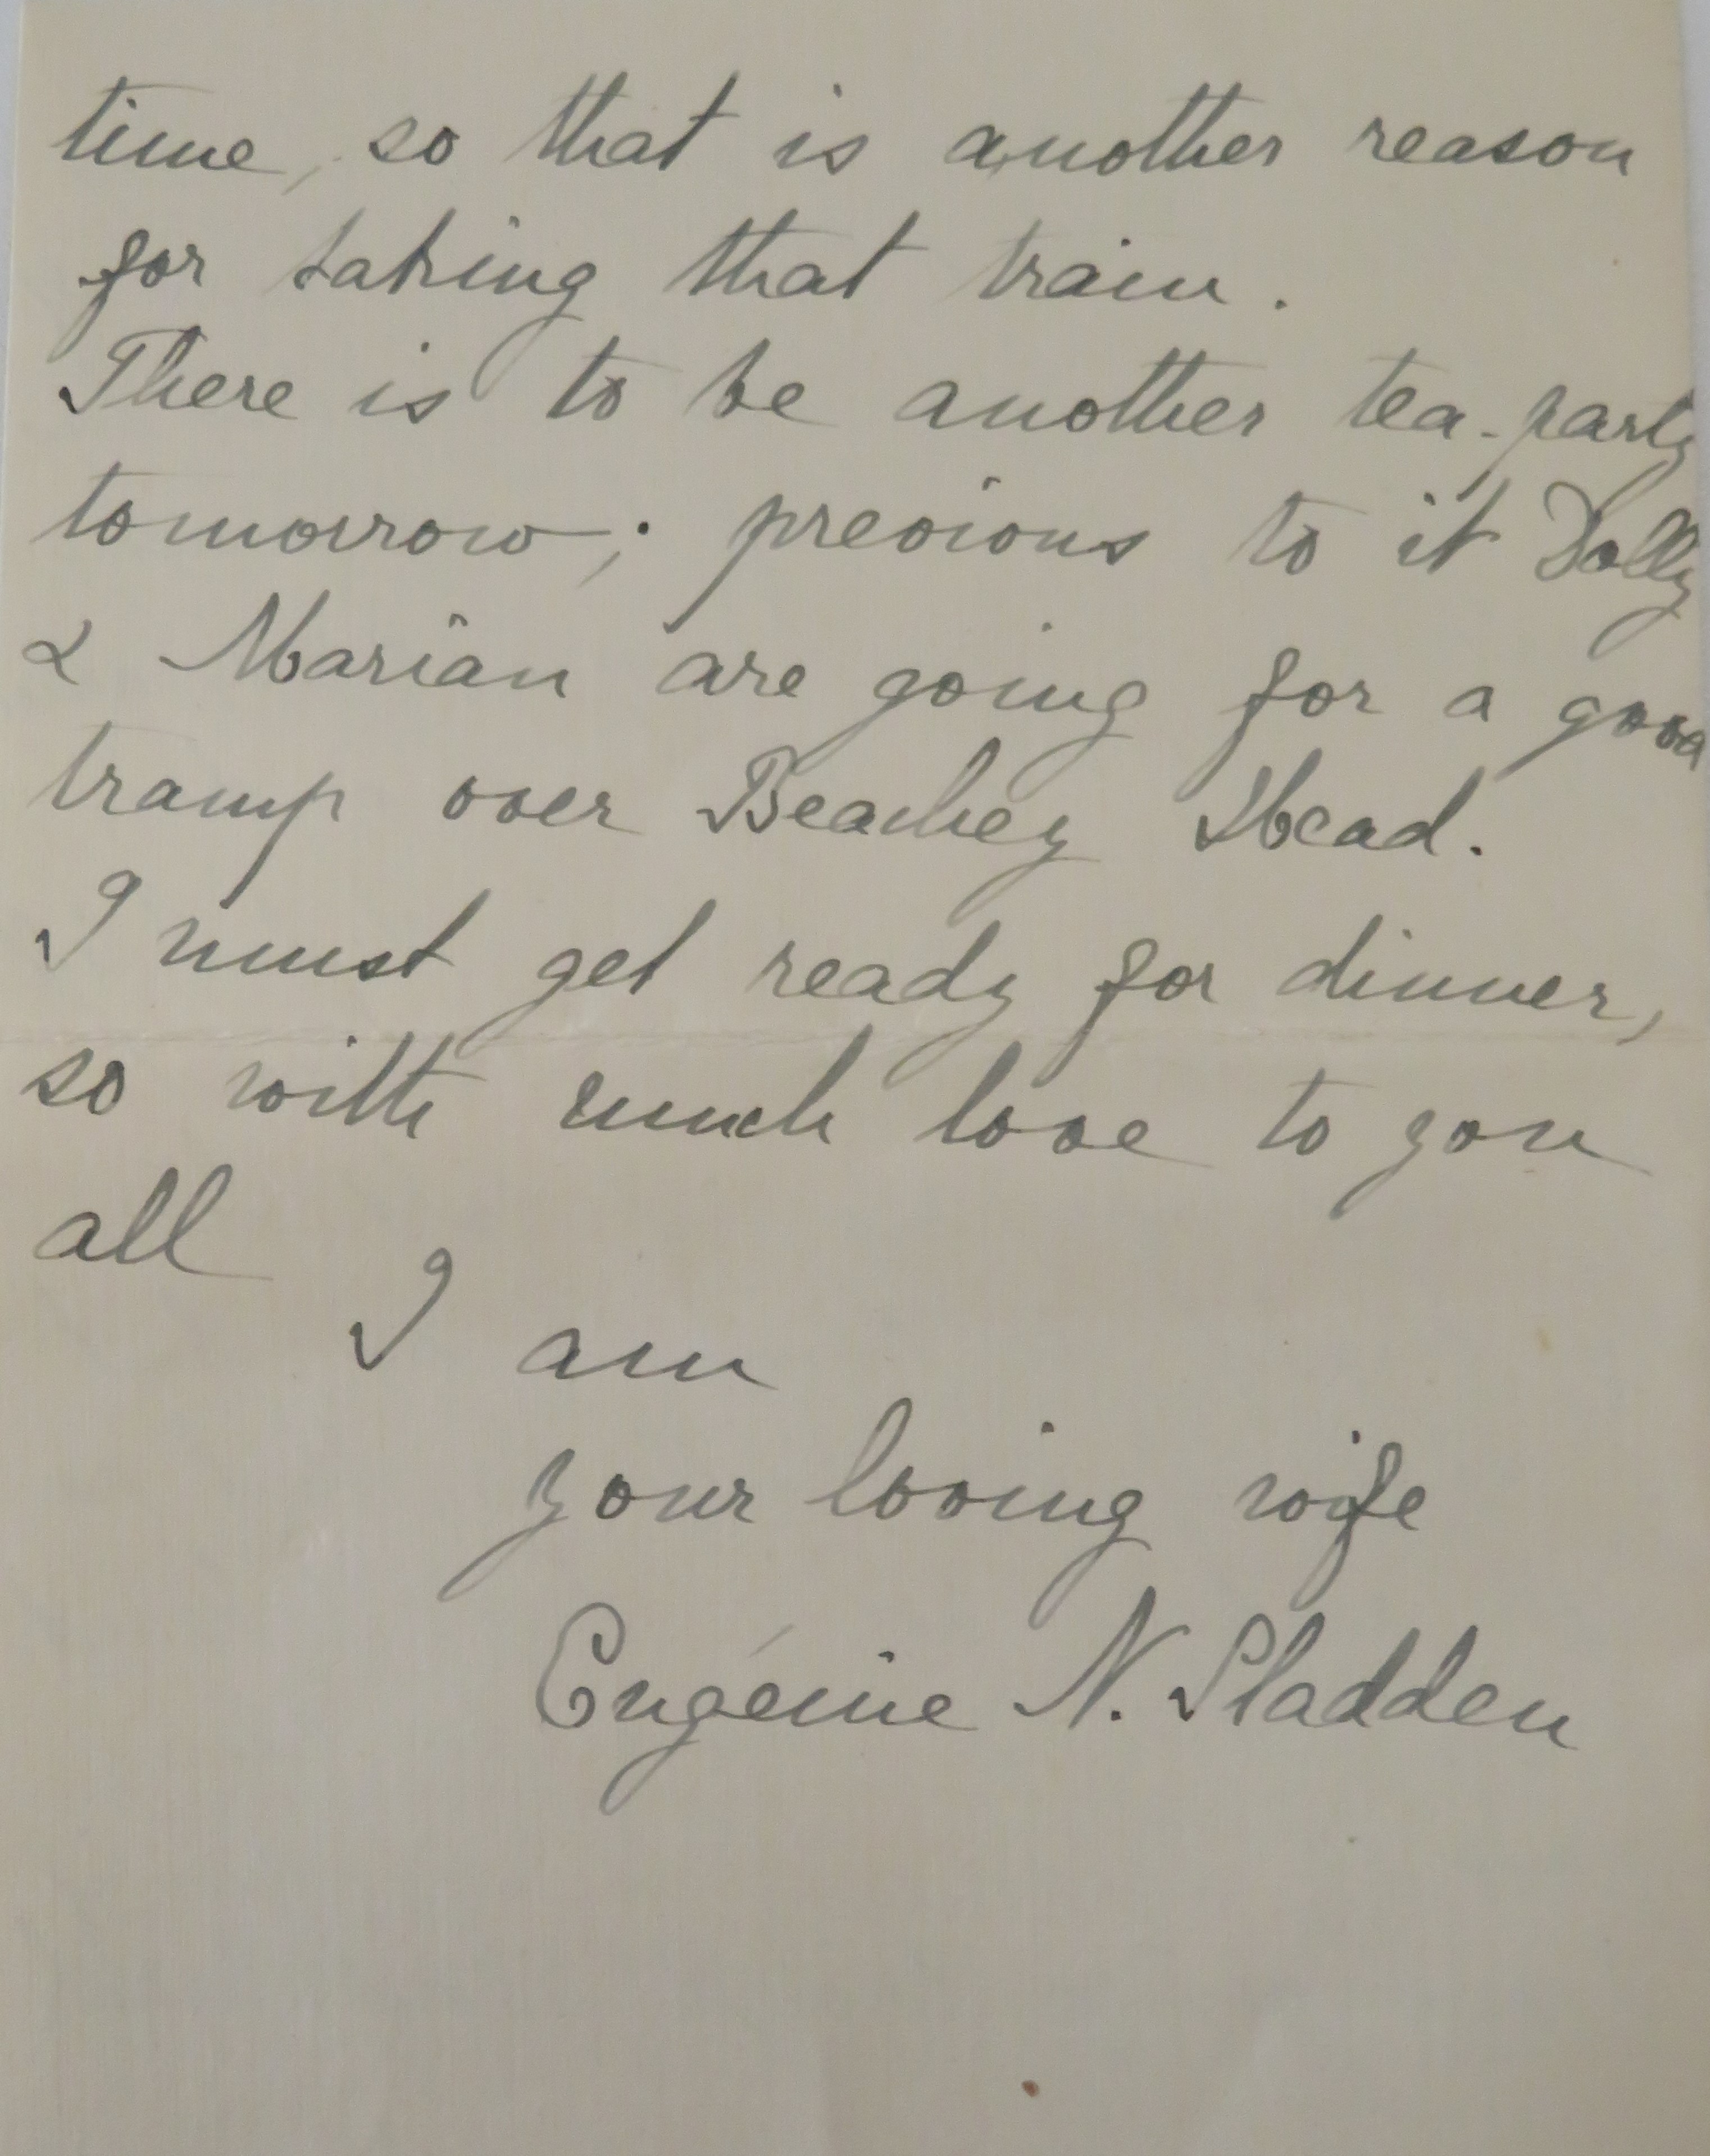 time, so that is another reason
for taking that train.
There is to be another tea-party
tomorrow; previous to it Dolly
& Marian are going for a good
tramp over Beachey Head.
I must get ready for dinner,
so with much love to you
all
I am
your loving wife
Eugénie N. Sladden